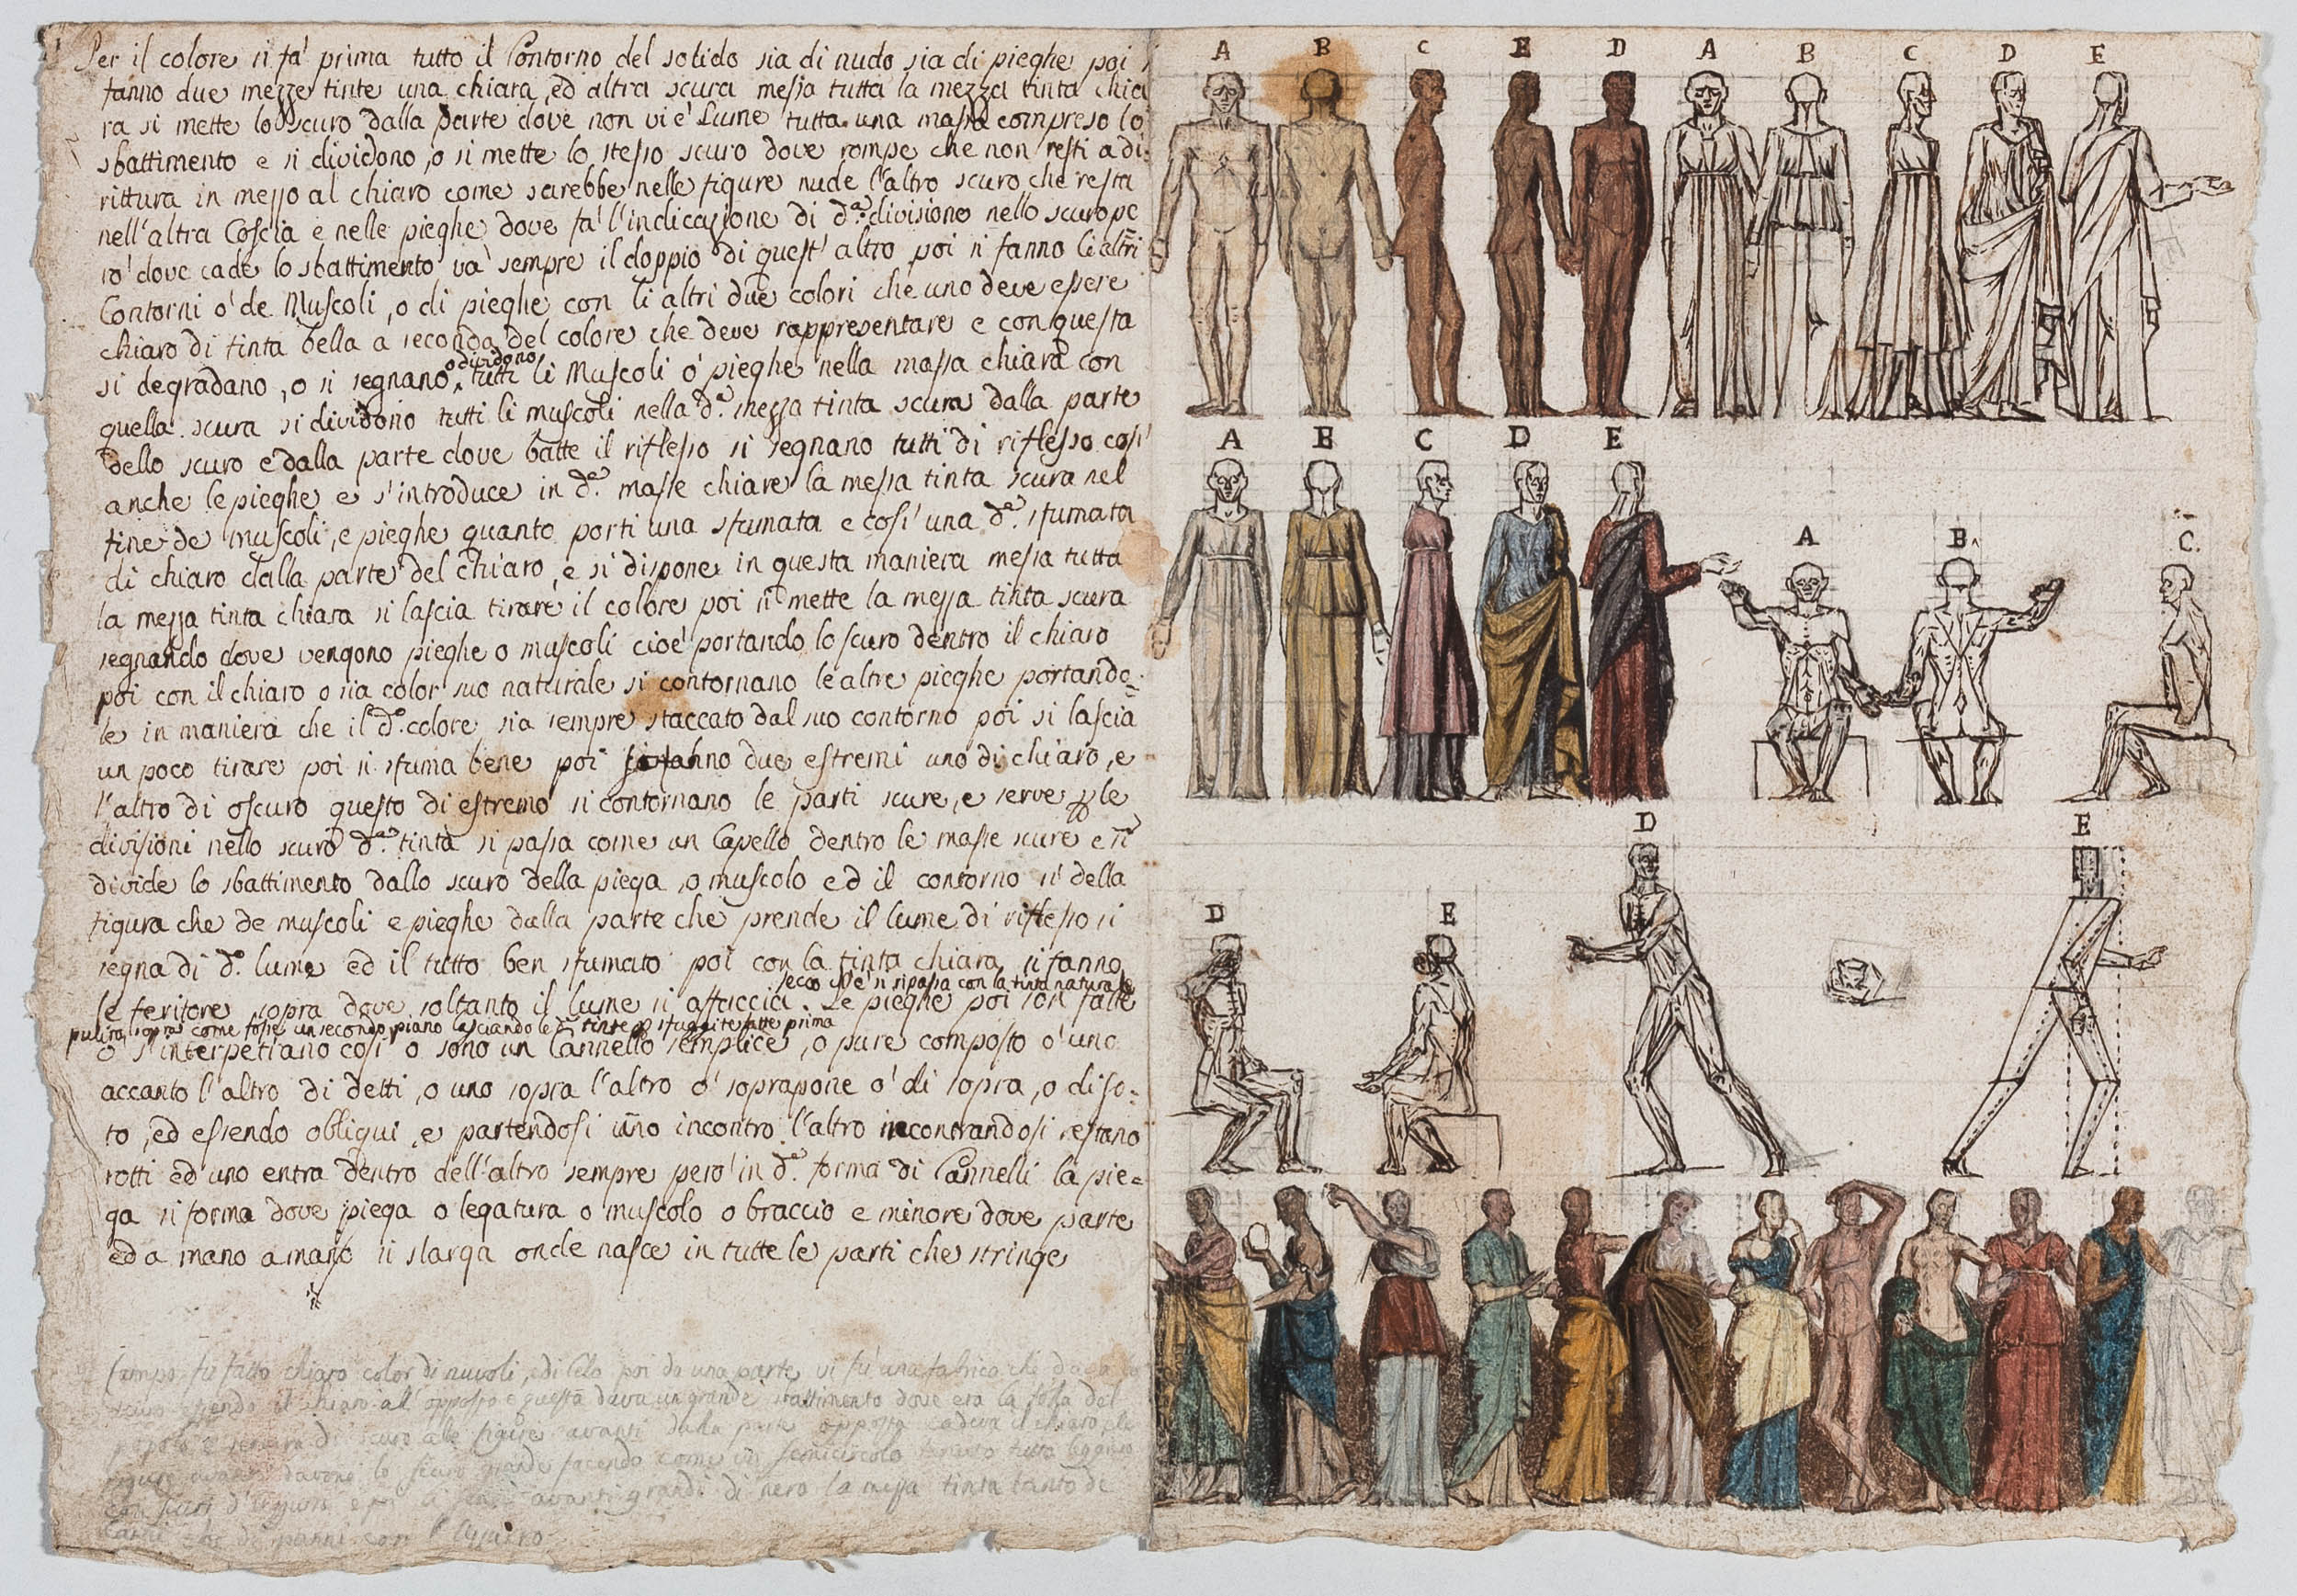 Per il colore si fà prima tutto il Contorno del solido sia di nudo sia di pieghe poi si
fanno due mezze tinte una chiara, ed altra scura messa tutta la mezza tinta chia
ra si mette lo scuro dalla parte dove non vi è Lume tutta una massa compreso lo
sbattimento e si dividono, o si mette lo stesso scuro dove rompe che non resti a di:
rittura in messo al chiaro come sarebbe nelle figure nude l'altro scuro che resta
nell'altra Coscia e nelle pieghe dove fà l'indicazione di d.ª divisione nello scuro pe
rò dove cade lo sbattimento và sempre il doppio di quest'altro poi si fanno li altri
Contorni ò de Muscoli, o di pieghe con li altri due colori che uno deve essere
chiaro di tinta bella a seconda del colore che deve rappresentare e con questa
si degradano, o si segnano, o dividono tutti li Muscoli ò pieghe nella massa chiara con
quella scura si dividono tutti li muscoli nella d.ª messa tinta scura dalla parte
dello scuro e dalla parte dove batte il riflesso si segnano tutti di riflesso così
anche le pieghe e s'introduce in d.e masse chiare la messa tinta scura nel
fine de muscoli, e pieghe quanto porti una sfumata e così una d.ª sfumata
di chiaro dalla parte del chiaro, e si dispone in questa maniera messa tutta
la messa tinta chiara si lascia tirare il colore poi si mette la messa tinta scura
segnando dove vengono pieghe o muscoli cioè portando lo scuro dentro il chiaro
poi con il chiaro o sia color suo naturale si contornano le altre pieghe portando=
le in maniera che il d.º colore sia sempre staccato dal suo contorno poi si lascia
un poco tirare poi si sfuma bene poi si fanno due estremi uno di chiaro, e
l'altro di oscuro questo di estremo si contornano le parti scure, e serve p le
divisioni nello scuro d.ª tinta si passa come un Capello dentro le masse scure e si
divide lo sbattimento dallo scuro della piega, o muscolo ed il contorno si della
figura che de muscoli e pieghe dalla parte che prende il lume di riflesso si
segna di d.º lume ed il tutto ben sfumato poi con la tinta chiara si fanno
le feritore sopra dove soltanto il lume si affaccia. secco che è si ripassa con la tinta naturale
pulita sopra come fosse un secondo piano lasciando le d.e tinte p sfuggite fatte prima
Le pieghe poi son fatte
o s'interpetrano così o sono un Cannello semplice, o pure composto o uno
accanto l'altro di detti, o uno sopra l'altro o soprapone o di sopra, o di so=
to, ed essendo obliqui, e partendosi uno incontro l'altro incontrandosi restano
rotti ed uno entra dentro dell'altro sempre però in d.ª forma di Cannelli la pie=
ga si forma dove piega o legatura o muscolo o braccio e minore dove parte
ed a mano a mano si slarga onde nasce in tutte le parti che stringe
Campo fu fatto chiaro color di nuvoli, di Celo poi da una parte vi fù una fabrica che dava lo
scuro essendo il chiaro all'opposto e questa dava un grande sbattimento dove era la folla del
popolo e serviva di scuro alle figure avanti dalla parte opposta cadeva il chiaro, e le
figure avanti davano lo scuro grande facendo come un semicircolo
avanti grandi di nero la messa tinta tanto de
carni che di panni con l'
A B C B D A B C D E
A B C D E
A B C
D E
D E